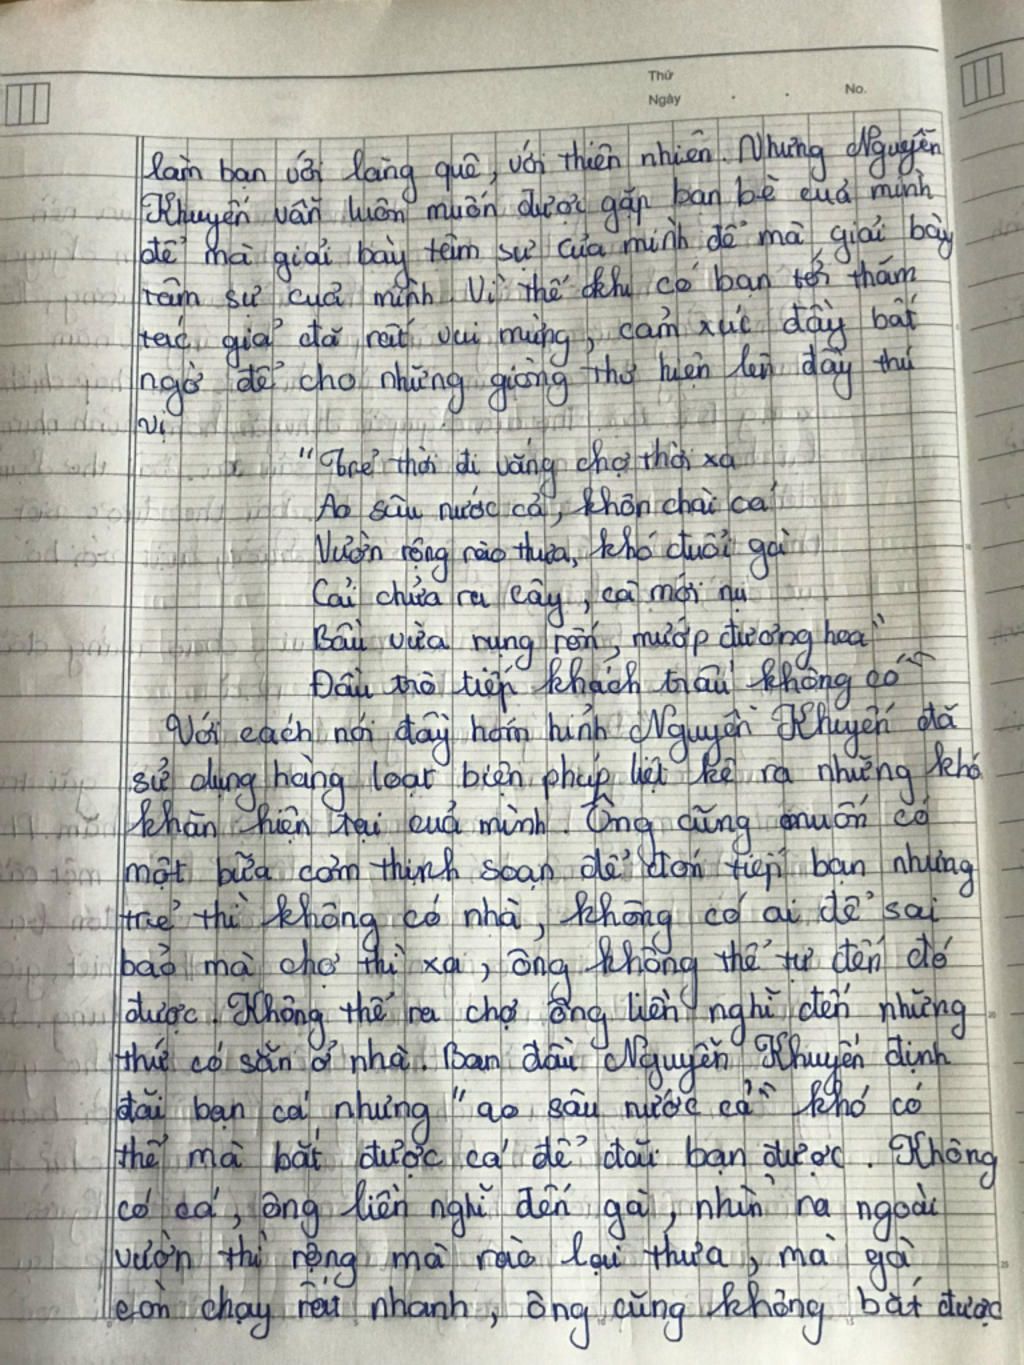 Thứ
Ngày . . No.
làm bạn với làng quê, với thiên nhiên. Nhưng Nguyễn
Khuyến vẫn luôn muốn được gặp bạn bè cuả mình
để mà giải bày tâm sự của mình để mà giải bày
tâm sự cuả mình. Vì thế khi có bạn tới thăm
tác giả đã rất vui mừng, cảm xúc đầy bất
ngờ để cho những giòng thơ hiện lên đầy thú
vị
"Trẻ thời đi vắng chợ thời xa
Ao sâu nước cả, khôn chài cá
Vườn rộng rào thưa, khó đuổi gà
Cải chửa ra cây, cà mới nụ
Bầu vừa rụng rốn, mướp đương hoa"
Đầu trò tiếp khách trầu không có"
Với cách nói đầy hóm hỉnh Nguyễn Khuyến đã
sử dụng hàng loạt biện pháp liệt kê ra những khó
khăn hiện tại cuả mình. Ông cũng muốn có
một bữa cơm thịnh soạn để đón tiếp bạn nhưng
trẻ thì không có nhà, không có ai để sai
bảo mà chợ thì xa, ông không thể tự đến đó
được. Không thể ra chợ ông liền nghĩ đến những
thứ có sẵn ở nhà. Ban đầu Nguyễn Khuyến định
đãi bạn cá, nhưng "ao sâu nước cả" khó có
thể mà bắt được cá để đãi bạn được. Không
có cá, ông liền nghĩ đến gà, nhìn ra ngoài
vườn thì rộng mà rào lại thưa, mà gà
còn chạy rất nhanh, ông cũng không bắt được